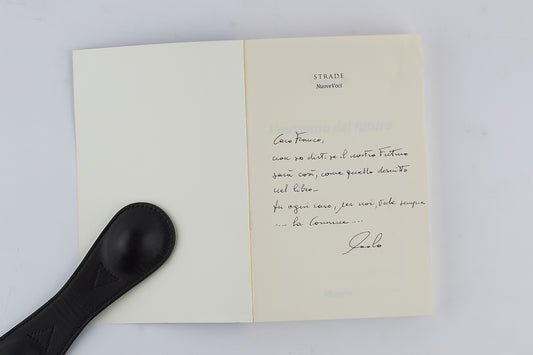 STRADE
NuoveVoci
Caro Franco,
non so dirti se il nostro Futuro
sarà così, come quello descritto
nel libro.
In ogni caso, per noi, vale sempre
.... La Comune ....
Paolo